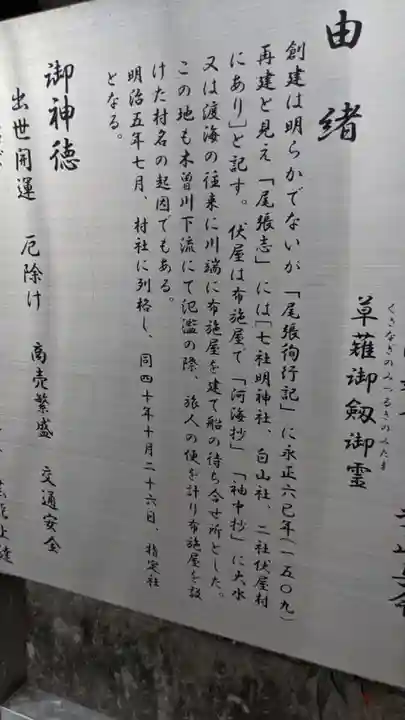 草薙御劔御霊
くさなぎのみつるぎのみたま
由緒
創建は明らかでないが「尾張徇行記」に永正六巳年(一五〇九)
再建と見え「尾張志」には「七社明神社、白山社、二社伏屋村
にあり」と記す。伏屋は布施屋で「河海抄」「袖中抄」に大水
又は渡海の往来に川端に布施屋を建て船の待ち合せ所とした。
この地も木曽川下流にて氾濫の際、旅人の便を計り布施屋を設
けた村名の起因でもある。
明治五年七月、村社に列格し、同四十年十月二十六日、指定社
となる。
御神徳
出世開運 厄除け 商売繁盛 交通安全